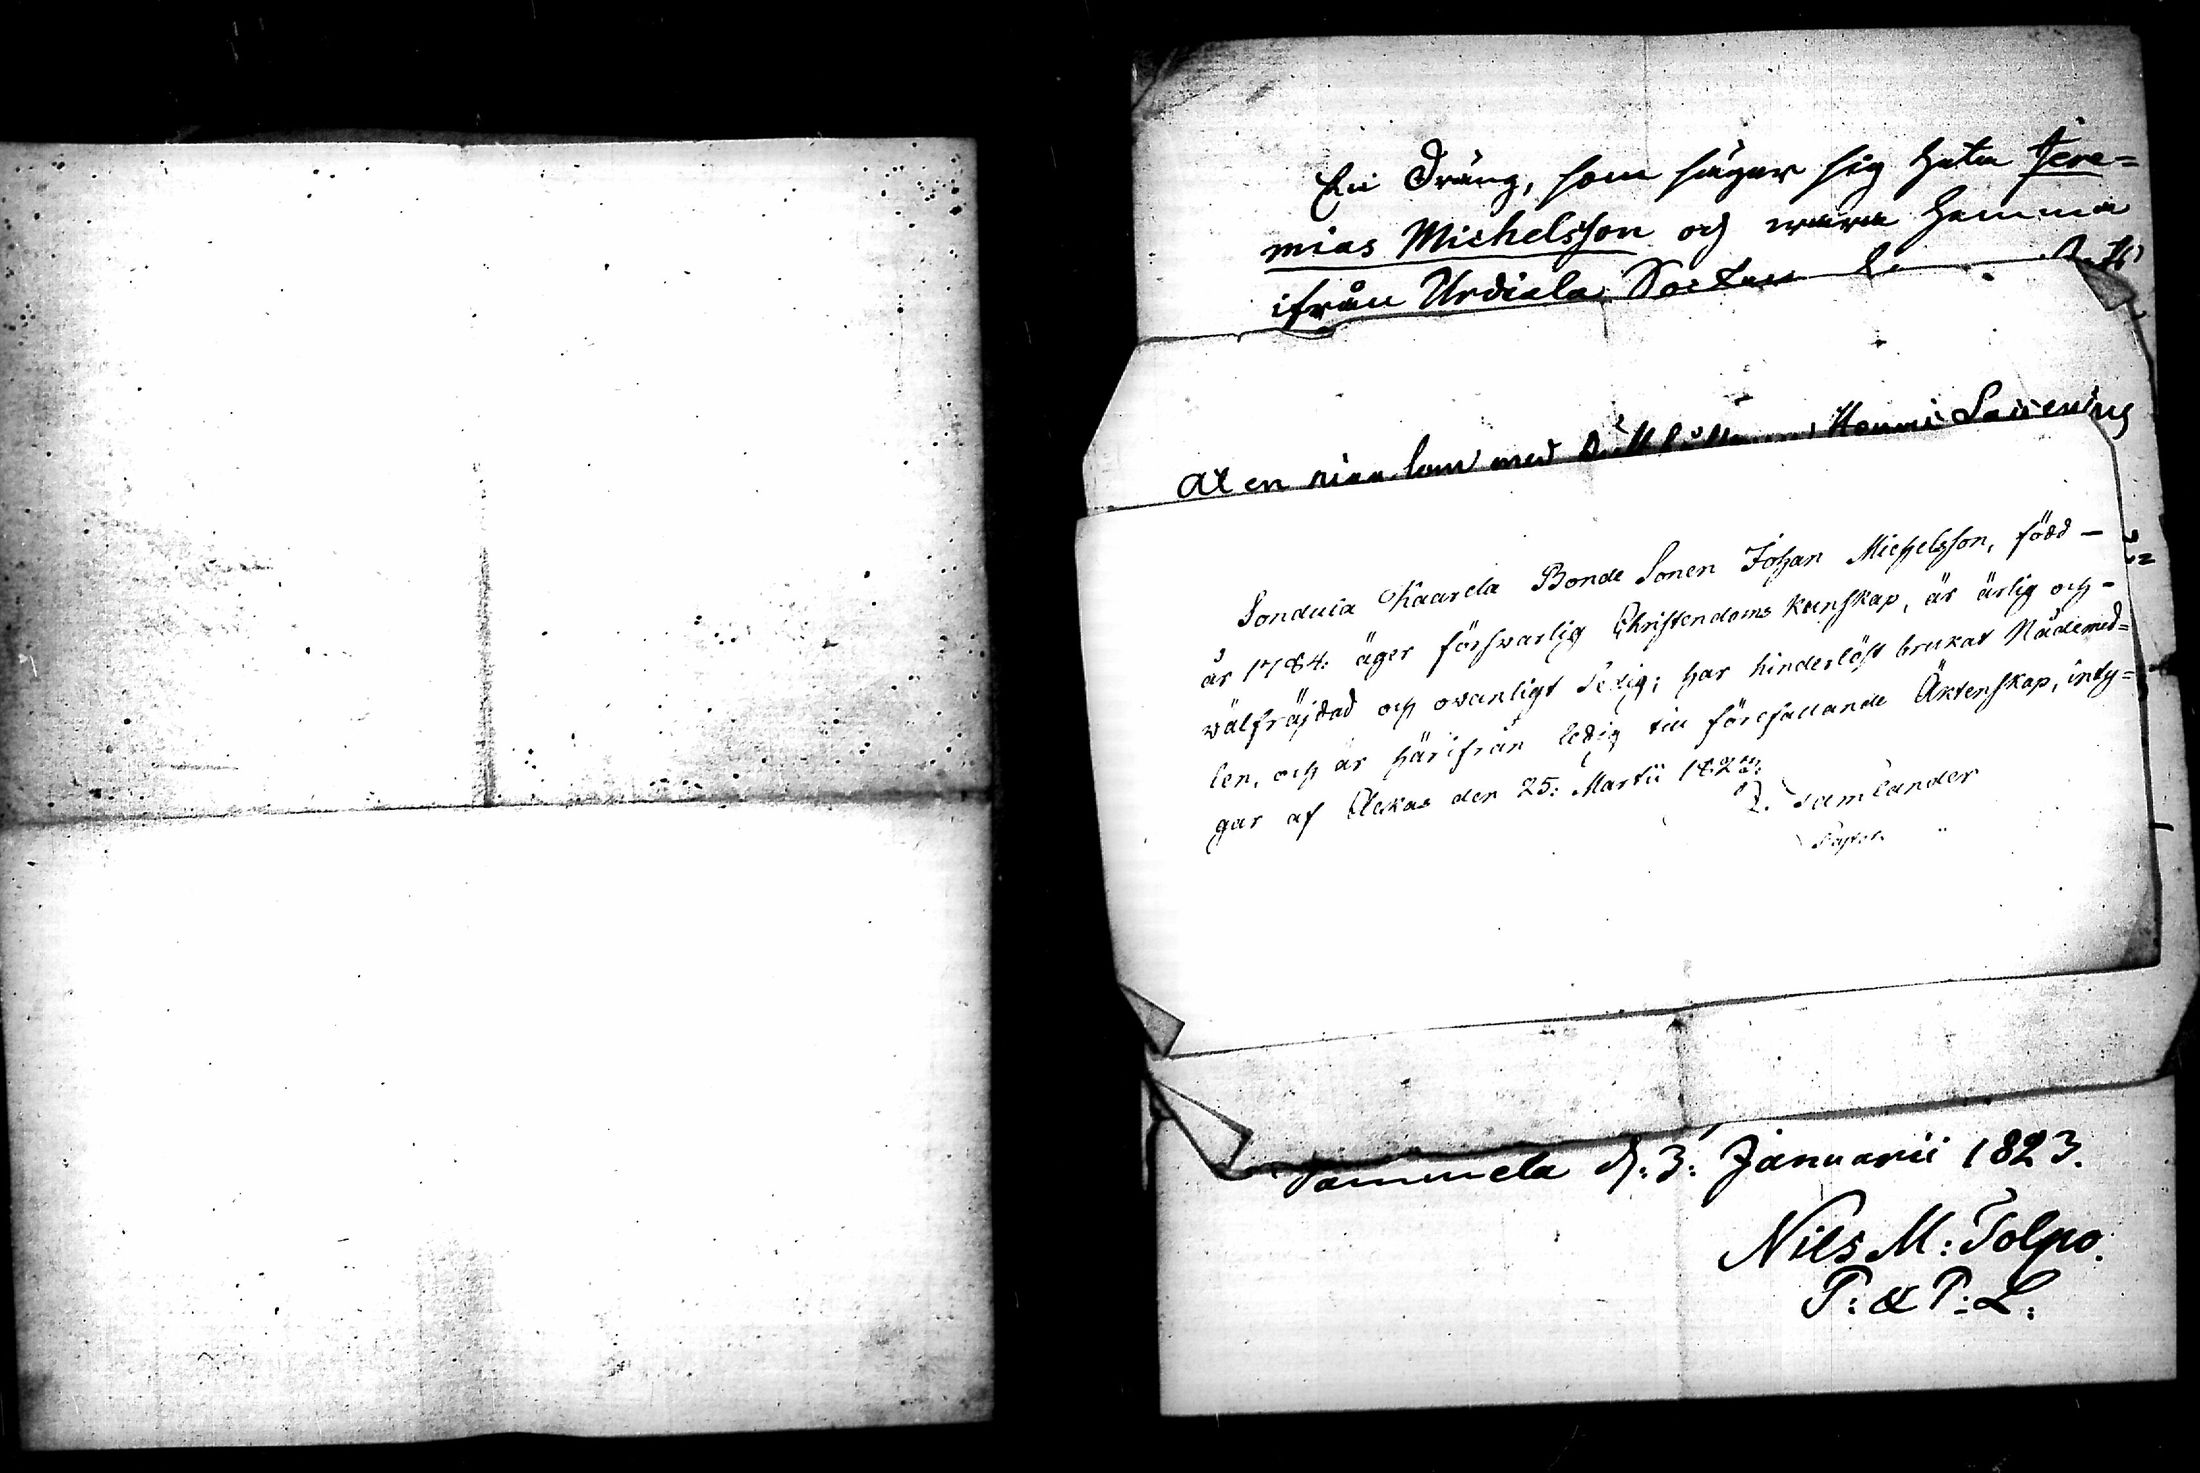 En Dräng, som säger sig heta Jere=
mias Michelsson och wara hemma
ifrån Urdiala Socken
At en med Henric Laurening
Sonduia Kaarela Bonde Sonen Johan Michelsson, född –
år 1784: äger förswarlig Christendoms kunskap, är ärlig och –
wälfräjdad och owanligt sedig; har hinderlöst brukat Nådemed=
len, och är härifrån ledig till förefallande Äktenskap, inty=
gar af Ackas den 25: Martii
Tammela d. 3: Januarii 1823.
Nils M: Tolpo.
P: & P: L: